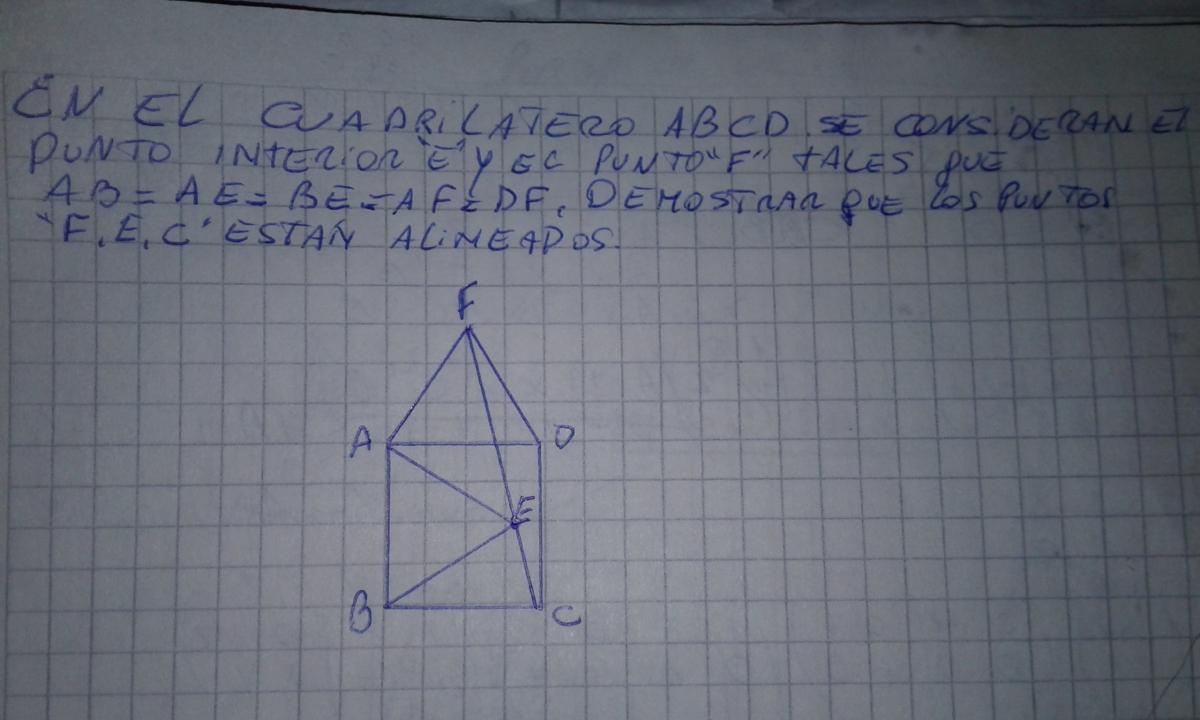 EN EL CUADRILATERO ABCD SE CONSIDERAN EL
PUNTO INTERIOR "E" Y EL PUNTO "F" TALES QUE
AB = AE = BE = AF = DF. DEMOSTRAR QUE LOS PUNTOS
"F, E, C" ESTAN ALINEADOS.
F
A D
E
B C